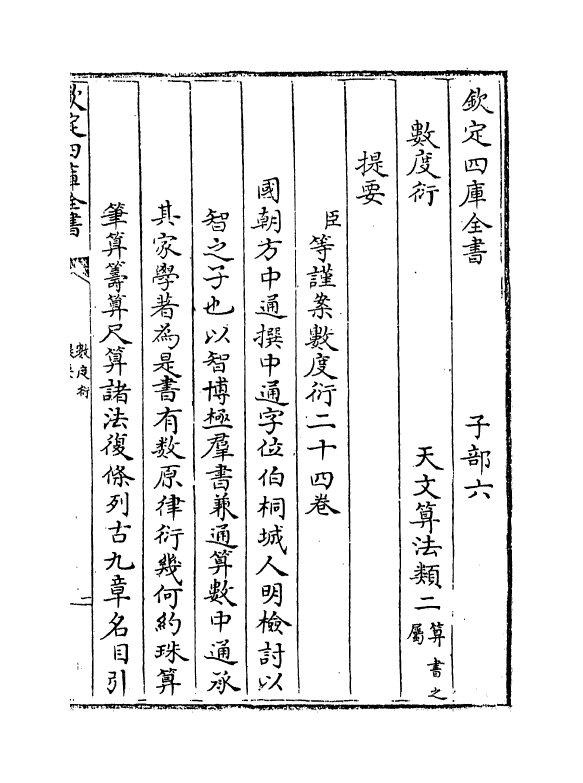 欽定四庫全書　子部六
數度衍　天文算法類二算書之屬
提要
臣等謹案數度衍二十四卷
國朝方中通撰中通字位伯桐城人明檢討以
智之子也以智博極羣書兼通算數中通承
其家學著為是書有数原律衍幾何約珠算
筆算籌算尺算諸法復條列古九章名目引
欽定四庫全書
數度衍
一